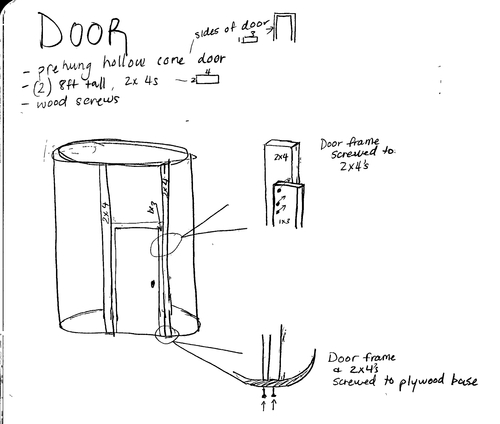 DOOR
sides of door
3
1
- prehung hollow core door
- (2) 8ft tall, 2x4s
4
2
- wood screws
2x4
2x4
1x3
2x4
1x3
Door frame
screwed to
2x4's
Door frame
& 2x4's
screwed to plywood base